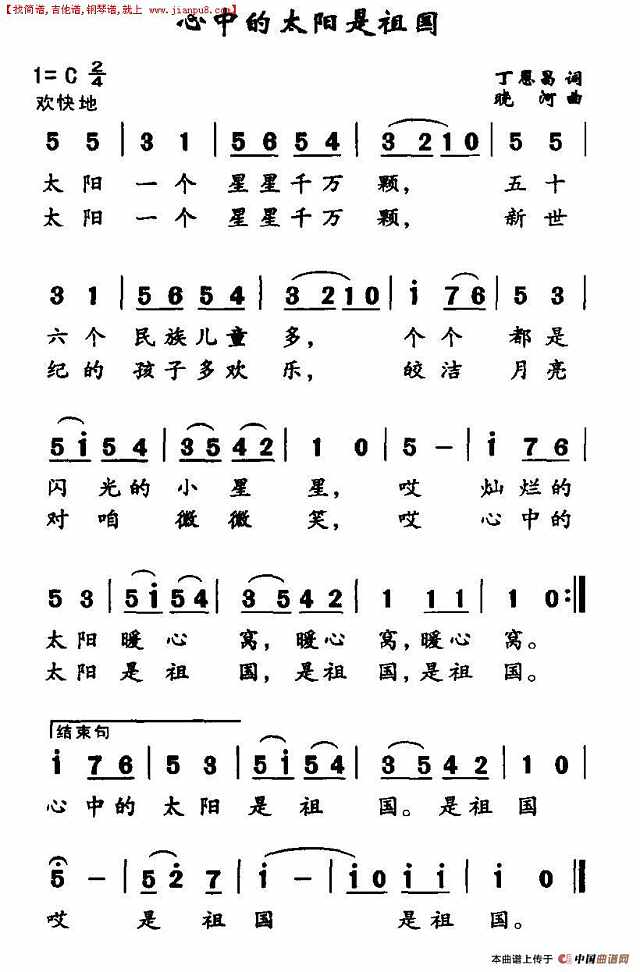 【找简谱,吉他谱,钢琴谱,就上 www.jianpu8.com】
心中的太阳是祖国
1=C 2/4
丁恩昌 词
欢快地
晓河 曲
5 5 | 3 1 | 5 6 5 4 | 3 2 1 0 | 5 5 |
太阳 一个 星星千万 颗, 五十
太阳 一个 星星千万 颗, 新世
3 1 | 5 6 5 4 | 3 2 1 0 | i 7 6 | 5 3 |
六个 民族儿童 多, 个个 都是
纪的 孩子多欢 乐, 皎洁 月亮
5 i 5 4 | 3 5 4 2 | 1 0 | 5 - | i 7 6 |
闪光的 小星 星, 哎 灿烂的
对咱 微微 笑, 哎 心中的
5 3 | 5 i 5 4 | 3 5 4 2 | 1 1 1 | 1 0 :||
太阳 暖心 窝, 暖心 窝, 暖心 窝。
太阳 是祖 国, 是祖 国, 是祖 国。
结束句
i 7 6 | 5 3 | 5 i 5 4 | 3 5 4 2 |
心中的 太阳 是祖 国。是祖国
5 - | 5 2 7 | i - | i 0 i i | i 0 ||
哎 是祖 国 是祖 国。
本曲谱上传于 中国曲谱网